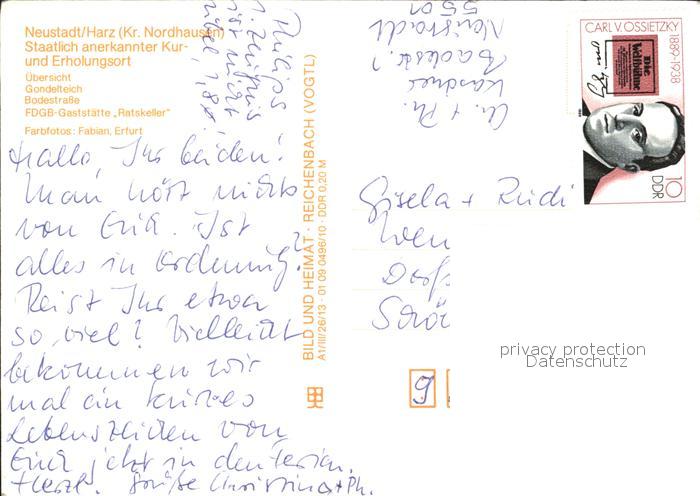 Neustadt/Harz (Kr. Nordhausen)
Staatlich anerkannter Kur-
und Erholungsort
Übersicht
Gondelteich
Bodestraße
FDGB-Gaststätte „Ratskeller"
Farbfotos: Fabian, Erfurt
Hallo, Ihr beiden!
Man hört nichts
von Euch. Ist
alles in Ordnung?
Reist Ihr etwa
so viel? Vielleicht
bekommen wir
mal ein kurzes
Lebenszeichen von
Euch jetzt in den Ferien.
Herzl. Grüße Christina + Ph.
Philipps
1. Zeugnis
ist nicht
übel, 1,8!
BILD UND HEIMAT · REICHENBACH (VOGTL)
A1/III/26/13 · 01 09 0496/10 · DDR 0,20 M
Ch. + Ph.
Badestr. 1
Neustadt
5501
CARL V. OSSIETZKY
1889-1938
Die
Weltbühne
10
DDR
Gisela + Rudi
Dorf
9
privacy protection
Datenschutz